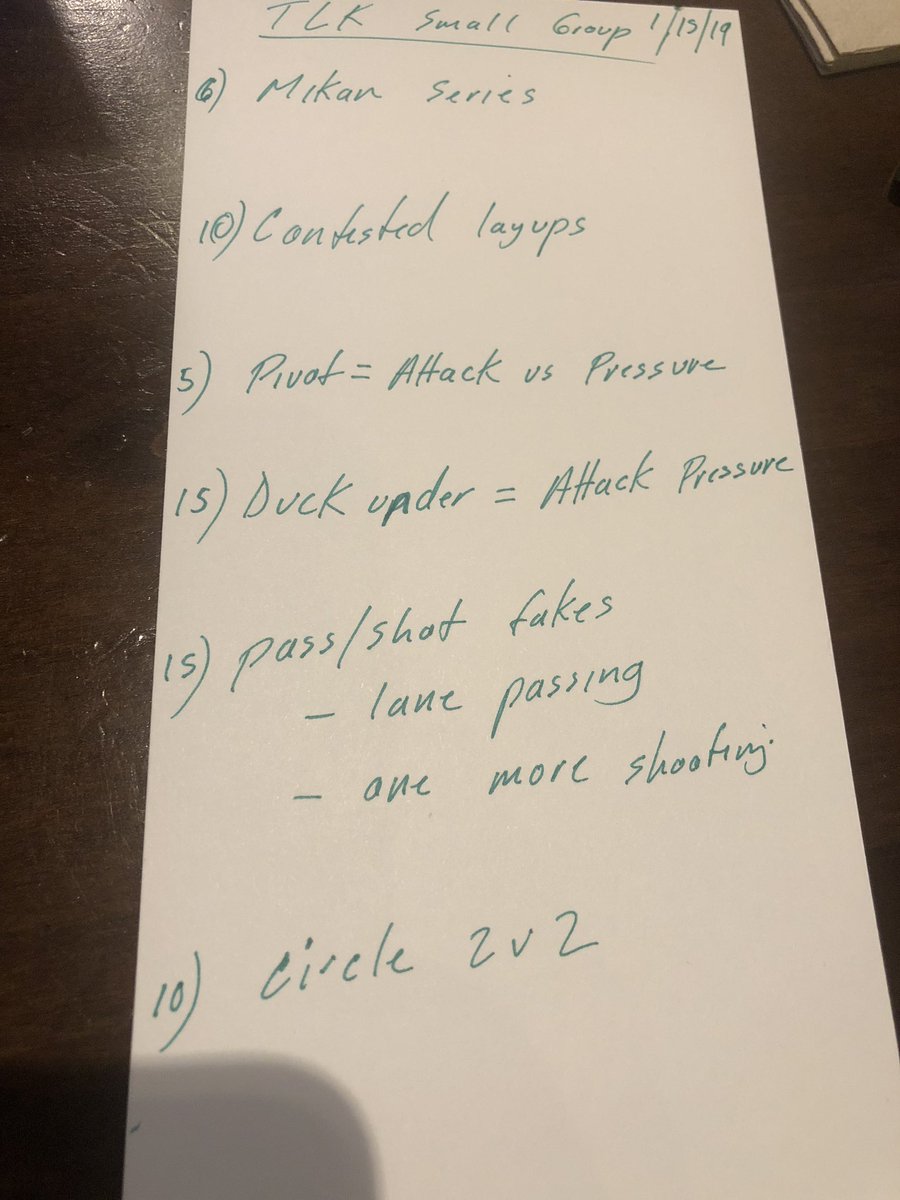 TLK Small Group 1/15/19
6) Mikan Series
10) Contested layups
5) Pivot = Attack vs Pressure
15) Duck under = Attack Pressure
15) pass/shot fakes
- lane passing
- one more shooting
10) circle 2v2